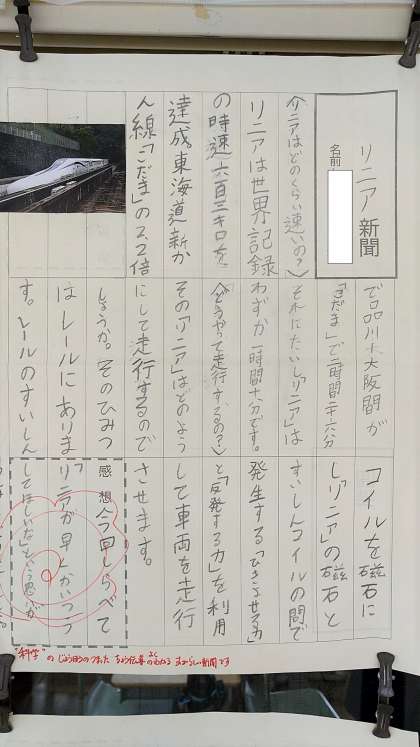 リニア新聞
名前
〈リニアはどのくらい速いの?〉
リニアは世界記録
の時速六百三キロを
達成東海道新か
ん線「こだま」の2.2倍
で品川大阪間が
「こだま」で二時間二十六分
それにたいし「リニア」は
わずか一時間十分です。
〈どうやって走行するの?〉
その「リニア」はどのよう
にして走行するので
しょうか。そのひみつ
はレールにありま
す。レールのすいしん
コイルを磁石に
し「リニア」の磁石と
すいしんコイルの間で
発生する「ひきよせる力」
と「反発する力」を利用
して車両を走行
させます。
感想 今回しらべて
リニアが早くかいつう
してほしいなという思いが
"科学"の じょうほうのつまった